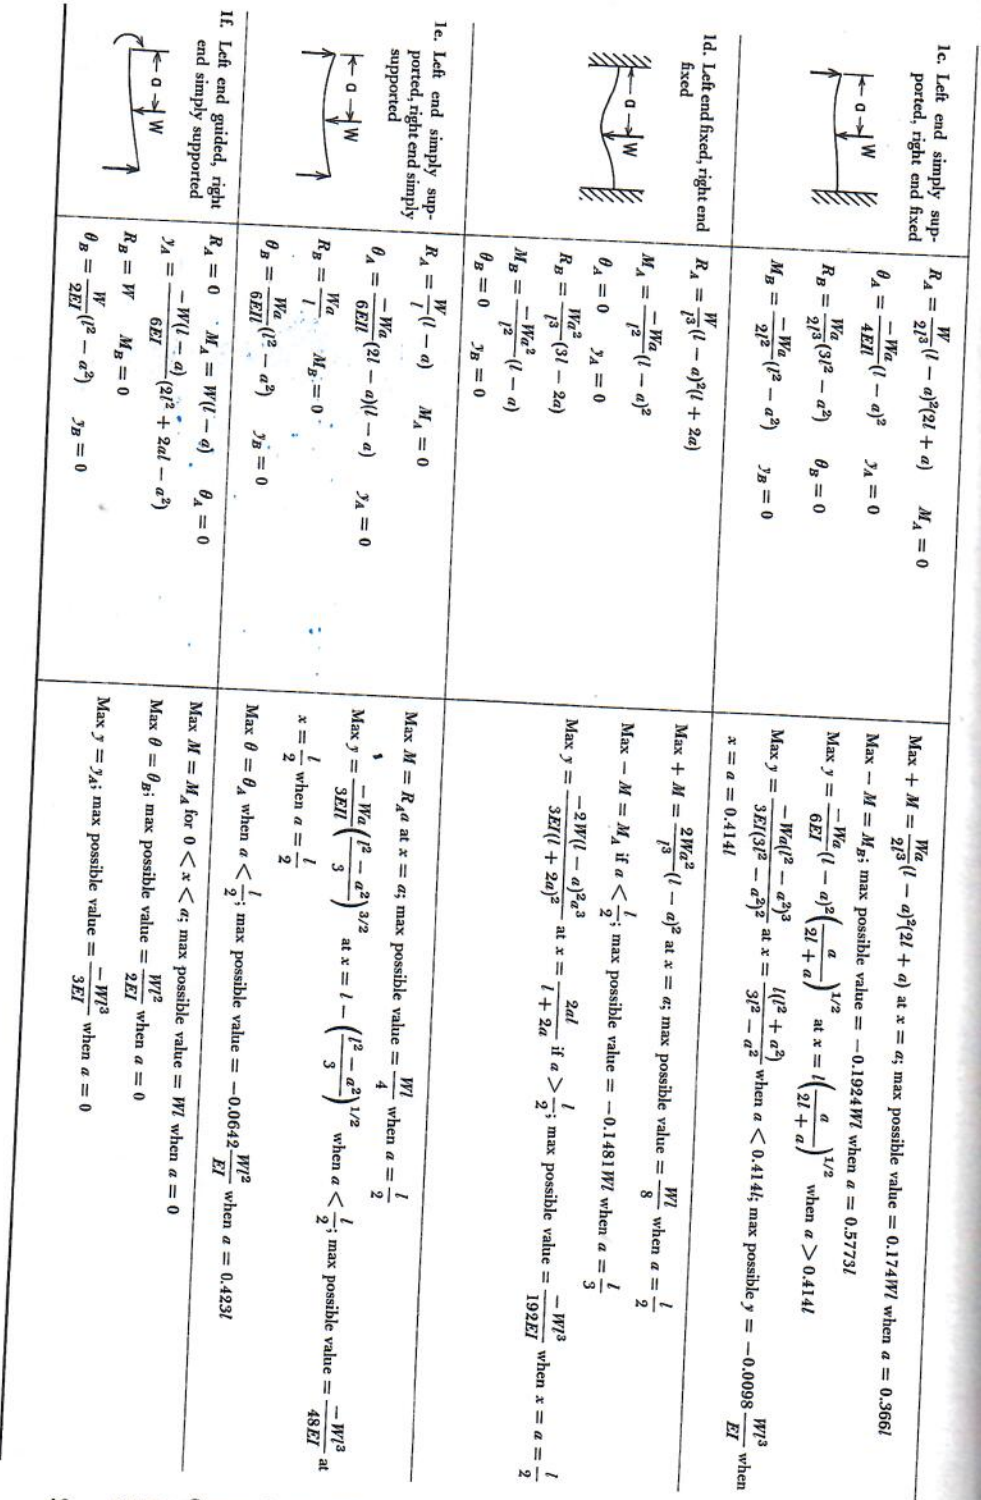 1c. Left end simply sup-
ported, right end fixed
a
W
R_A = W/2l³ (l − a)²(2l + a)   M_A = 0
θ_A = −Wa/4EIl (l − a)²   y_A = 0
R_B = Wa/2l³ (3l² − a²)   θ_B = 0
M_B = −Wa/2l² (l² − a²)   y_B = 0
Max + M = Wa/2l³ (l − a)²(2l + a) at x = a; max possible value = 0.174Wl when a = 0.366l
Max − M = M_B; max possible value = −0.1924Wl when a = 0.5773l
Max y = −Wa/6EI (l − a)² (a/2l + a)^1/2 at x = l(a/2l + a)^1/2 when a > 0.414l
Max y = −Wa(l² − a²)³/3EI(3l² − a²)² at x = l(l² + a²)/3l² − a² when a < 0.414l; max possible y = −0.0098 Wl³/EI when
x = a = 0.414l
1d. Left end fixed, right end
fixed
a
W
R_A = W/l³ (l − a)²(l + 2a)
M_A = −Wa/l² (l − a)²
θ_A = 0   y_A = 0
R_B = Wa²/l³ (3l − 2a)
M_B = −Wa²/l² (l − a)
θ_B = 0   y_B = 0
Max + M = 2Wa²/l³ (l − a)² at x = a; max possible value = Wl/8 when a = l/2
Max − M = M_A if a < l/2; max possible value = −0.1481Wl when a = l/3
Max y = −2W(l − a)²a³/3EI(l + 2a)² at x = 2al/l + 2a if a > l/2; max possible value = −Wl³/192EI when x = a = l/2
1e. Left end simply sup-
ported, right end simply
supported
a
W
R_A = W/l (l − a)   M_A = 0
θ_A = −Wa/6EIl (2l − a)(l − a)   y_A = 0
R_B = Wa/l   M_B = 0
θ_B = Wa/6EIl (l² − a²)   y_B = 0
Max M = R_A a at x = a; max possible value = Wl/4 when a = l/2
Max y = −Wa/3EIl (l² − a²/3)^3/2 at x = l − (l² − a²/3)^1/2 when a < l/2; max possible value = −Wl³/48EI at
x = l/2 when a = l/2
Max θ = θ_A when a < l/2; max possible value = −0.0642 Wl²/EI when a = 0.423l
1f. Left end guided, right
end simply supported
a
W
R_A = 0   M_A = W(l − a)   θ_A = 0
y_A = −W(l − a)/6EI (2l² + 2al − a²)
R_B = W   M_B = 0
θ_B = W/2EI (l² − a²)   y_B = 0
Max M = M_A for 0 < x < a; max possible value = Wl when a = 0
Max θ = θ_B; max possible value = Wl²/2EI when a = 0
Max y = y_A; max possible value = −Wl³/3EI when a = 0